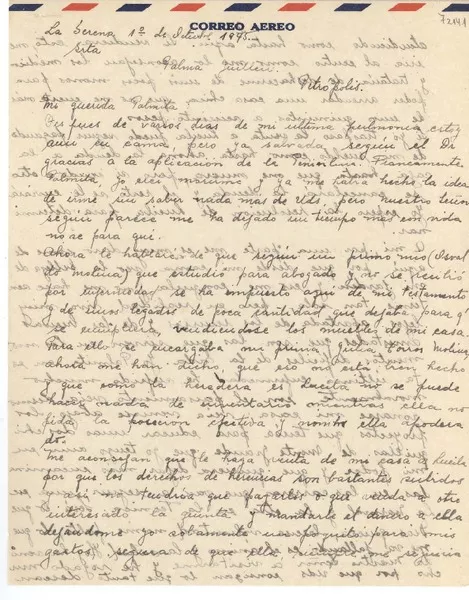 CORREO AEREO
72141
La Serena 1º de Octubre 1945.
Srta
Palma Guillen
Petrópolis.
Mi querida Palmita
Despues de varios dias de mi ultima pulmonia estoy
aun en cama, pero ya salvada, según el Dr
gracias a la aplicacion de la
Palmita yo creí morirme y ya me habia hecho la idea
de irme sin saber nada mas de Uds. pero nuestro Señor
según parece me ha dejado un tiempo mas con vida
no se para que.
Ahora te hablaré de que según un primo mio (Osval
do Molina) que estudió para abogado y no se recibió
por enfermedad, se ha impuesto aqui de mi testamento
y de unos legados de poca cantidad que dejaba para q'
se cumplieran, vendiendose los muebles de mi casa
Para ello se encargaba mi prima Julia Torres Molina,
ahora me han dicho, que eso no está bien hecho
y que como la heredera es Lucila no se puede
hacer nada de mientras ella no
pida la posesion efectiva, y nombre ella apodera
do.
me aconsejan que le haga venta de mi casa a Lucila
por que los derechos de herencias son bastantes subidos
y asi no tendria que pagarlos o que venda a otro
interesado la quinta y mandarle el dinero a ella
dejandome yo solamente un poquito para mis
gastos, segura de que ella